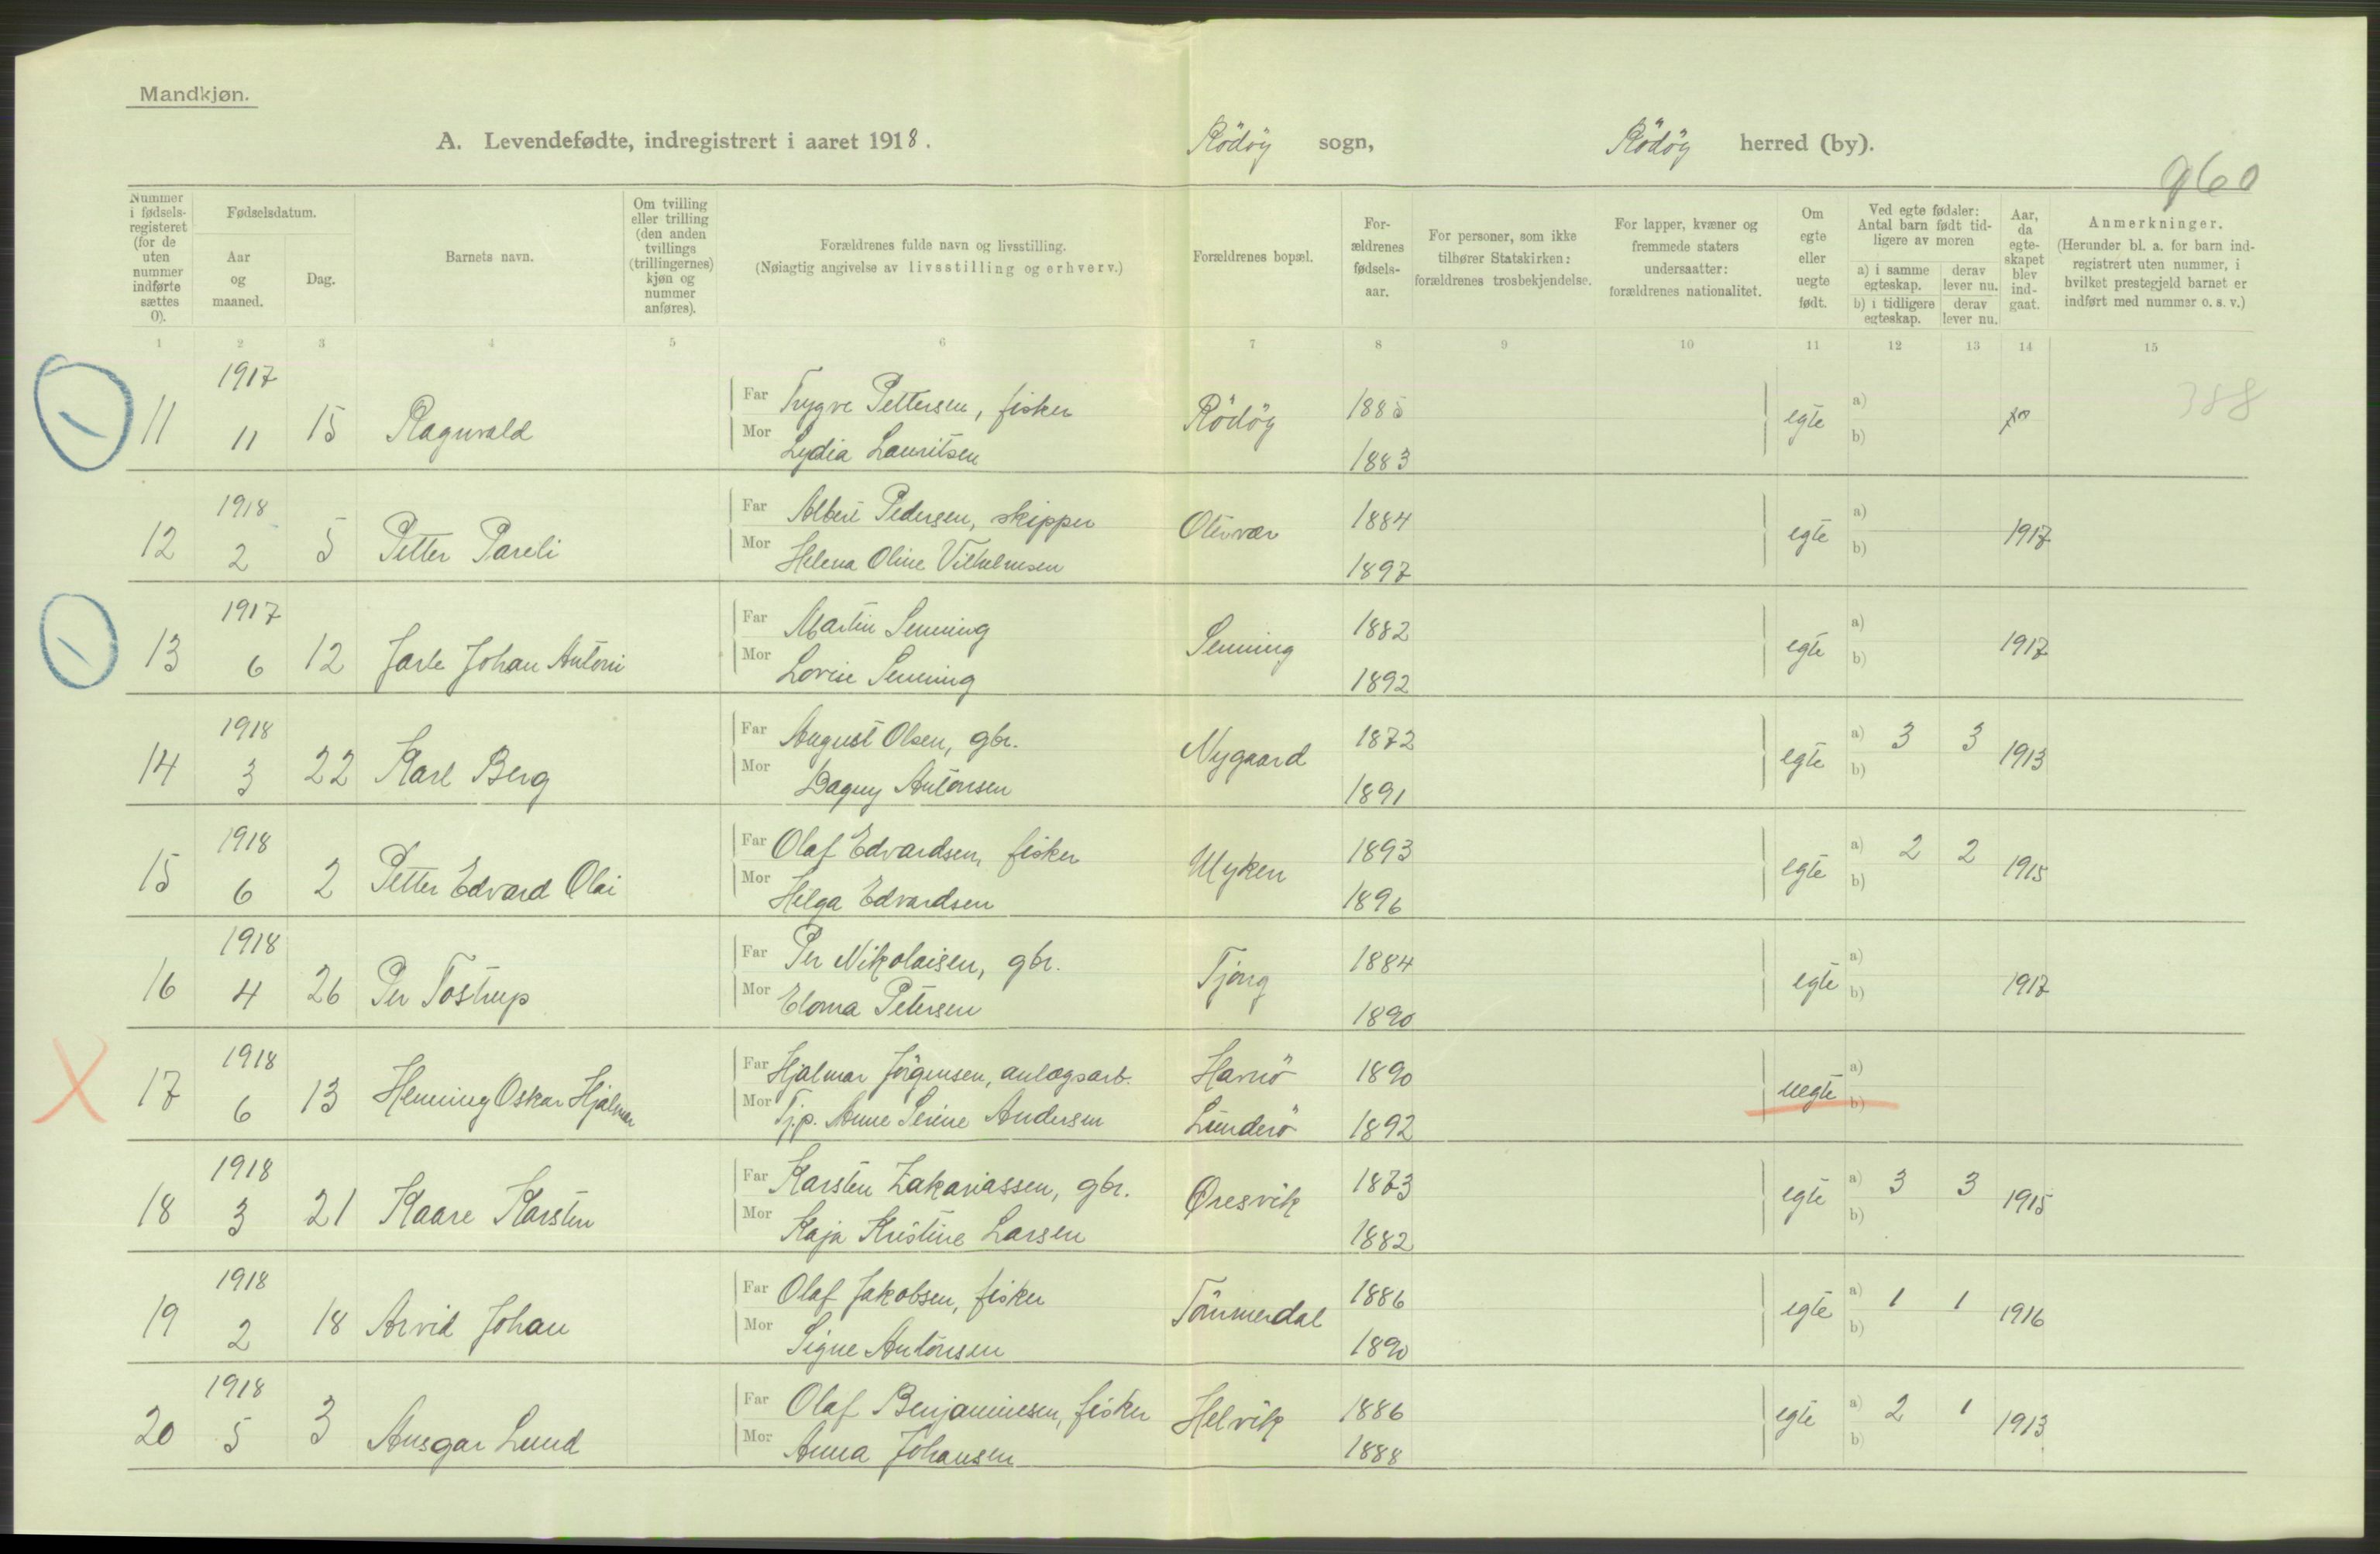 Mandkjøn.
A. Levendefødte, indregistrert i aaret 1918. Rödöy sogn, Rödöy herred (by).
960
Nummer i fødselsregisteret (for de uten nummer indførte sættes 0).
Fødselsdatum.
Aar og maaned.
Dag.
Barnets navn.
Om tvilling eller trilling (den anden tvillings (trillingernes) kjøn og nummer anføres).
Forældrenes fulde navn og livsstilling.
(Nøiagtig angivelse av livsstilling og erhverv.)
Forældrenes bopæl.
Forældrenes fødselsaar.
For personer, som ikke tilhører Statskirken: forældrenes trosbekjendelse.
For lapper, kvæner og fremmede staters undersaatter: forældrenes nationalitet.
Om egte eller uegte født.
Ved egte fødsler: Antal barn født tidligere av moren
a) i samme egteskap. derav lever nu.
b) i tidligere egteskap. derav lever nu.
Aar, da egteskapet blev indgaat.
Anmerkninger.
(Herunder bl. a. for barn indregistrert uten nummer, i hvilket prestegjeld barnet er indført med nummer o. s. v.)
1 2 3 4 5 6 7 8 9 10 11 12 13 14 15
388
11 1917 11 15 Ragnvald Far Trygve Pettersen, fisker Rödöy 1885 egte a)
Mor Lydia Lauritsen 1883 b)
12 1918 2 5 Petter Pareli Far Albert Pedersen, skipper Otervær 1884 egte a) 1917
Mor Helena Oline Vilhelmsen 1897 b)
13 1917 6 12 Jarle Johan Antoni Far Martin Senning Senning 1882 egte a) 1917
Mor Lovise Senning 1892 b)
14 1918 3 22 Karl Berg Far August Olsen, gbr. Nygaard 1872 egte a) 3 3 1913
Mor Dagny Antonsen 1891 b)
15 1918 6 2 Petter Edvard Olai Far Olaf Edvardsen, fisker Myken 1893 egte a) 2 2 1915
Mor Helga Edvardsen 1896 b)
16 1918 4 26 Per Tostrup Far Per Nikolaisen, gbr. Tjong 1884 egte a) 1917
Mor Eloma Petersen 1890 b)
17 1918 6 13 Henning Oskar Hjalmar Far Hjalmar Jörgensen, anlægsarb. Havnö 1890 uegte a)
Mor Tj.p. Anne Serine Andersen Lunderö 1892 b)
18 1918 3 21 Kaare Karsten Far Karsten Zakariassen, gbr. Øresvik 1873 egte a) 3 3 1915
Mor Kaja Kristine Larsen 1882 b)
19 1918 2 18 Arvid Johan Far Olaf Jakobsen, fisker Tömmerdal 1886 egte a) 1 1 1916
Mor Signe Antonsen 1890 b)
20 1918 5 3 Ansgar Lund Far Olaf Benjaminsen, fisker Helvik 1886 egte a) 2 1 1913
Mor Anna Johansen 1888 b)